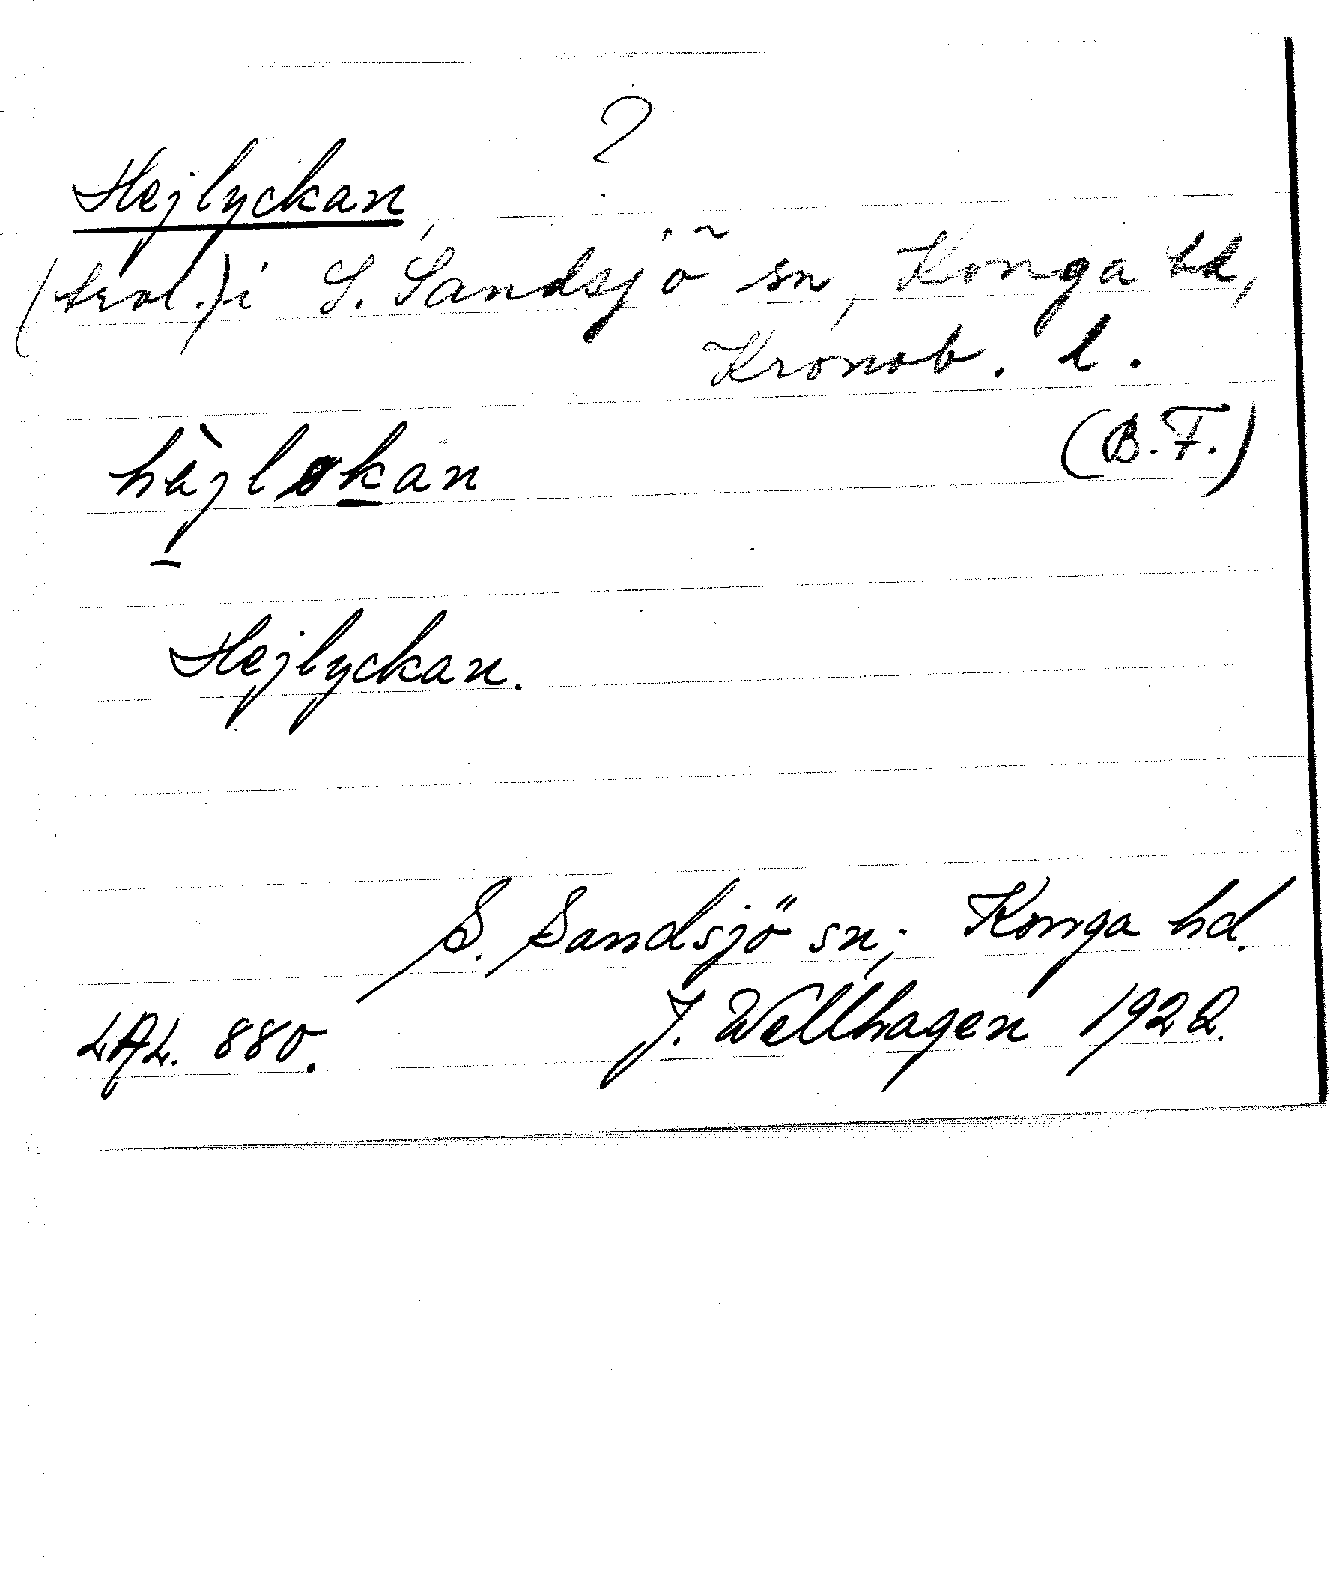 ?
Hejlyckan,
(trol.) i S. Sandsjö sn, Konga hd,
Kronob. l.
(B.F.)
Hejlyckan.
S. Sandsjö sn; Konga hd.
LAL. 880. J. Wellhagen 1922.